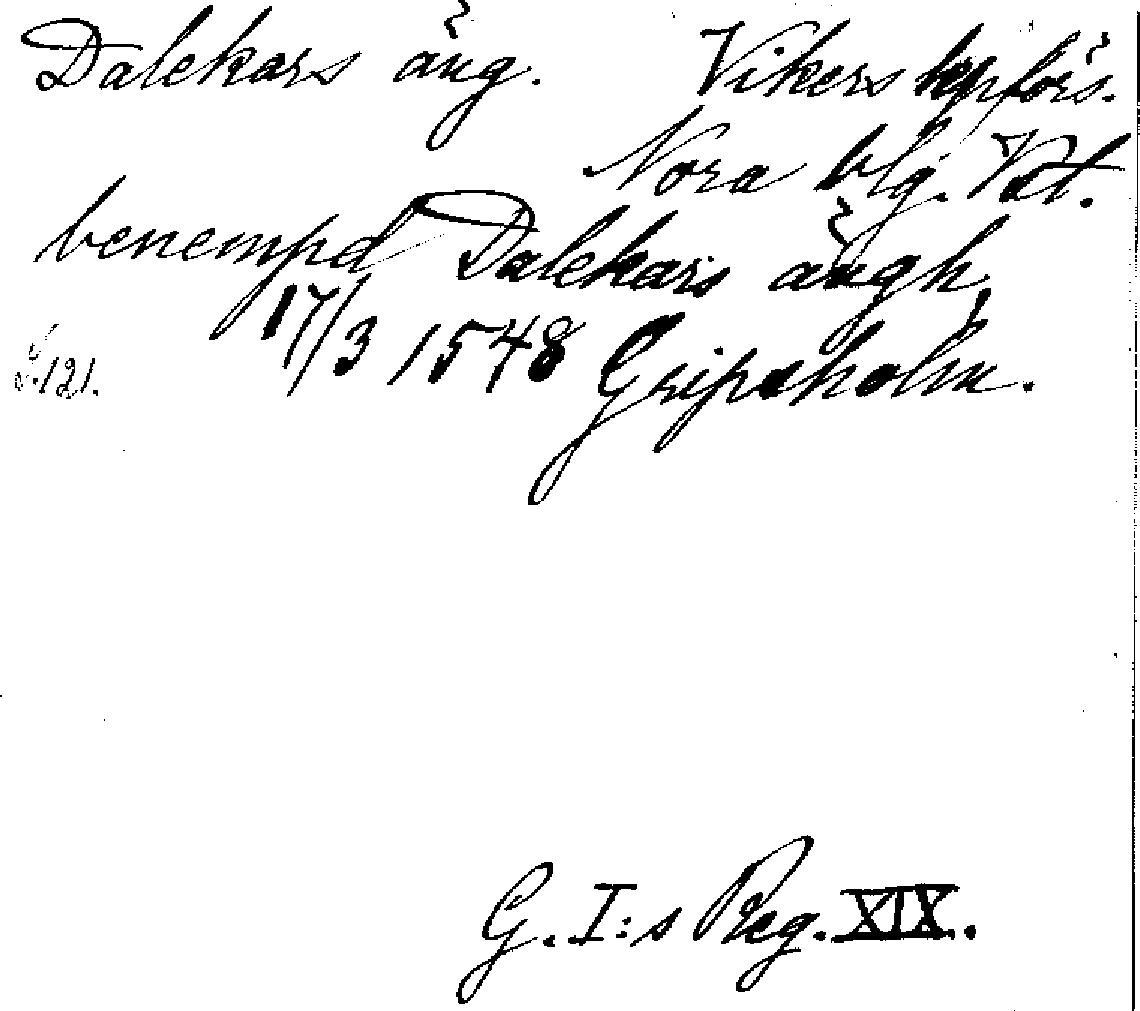 Dalekars äng. Vikers kpförs.
Nora blg. Vstm.
benempd Dalekars ängh,
17/3 1548 Gripsholm.
S. 121.
G. I:s Reg. XIX.